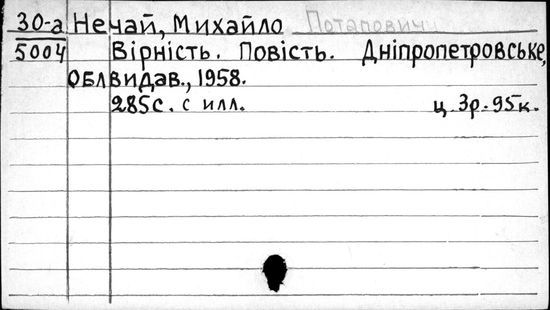 30-а Нечай, Михайло Потапович
5004 Вірність. Повість. Дніпропетровське,
облвидав., 1958.
285с. с илл. ц. 3р. 95к.